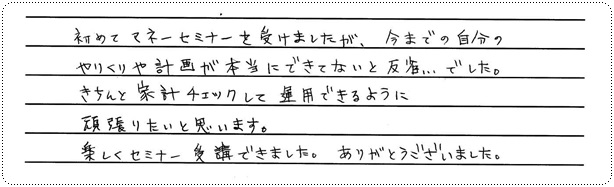 初めてマネーセミナーを受けましたが、今までの自分の
やりくりや計画が本当にできてないと反省…でした。
きちんと家計チェックして運用できるように
頑張りたいと思います。
楽しくセミナー受講できました。ありがとうございました。